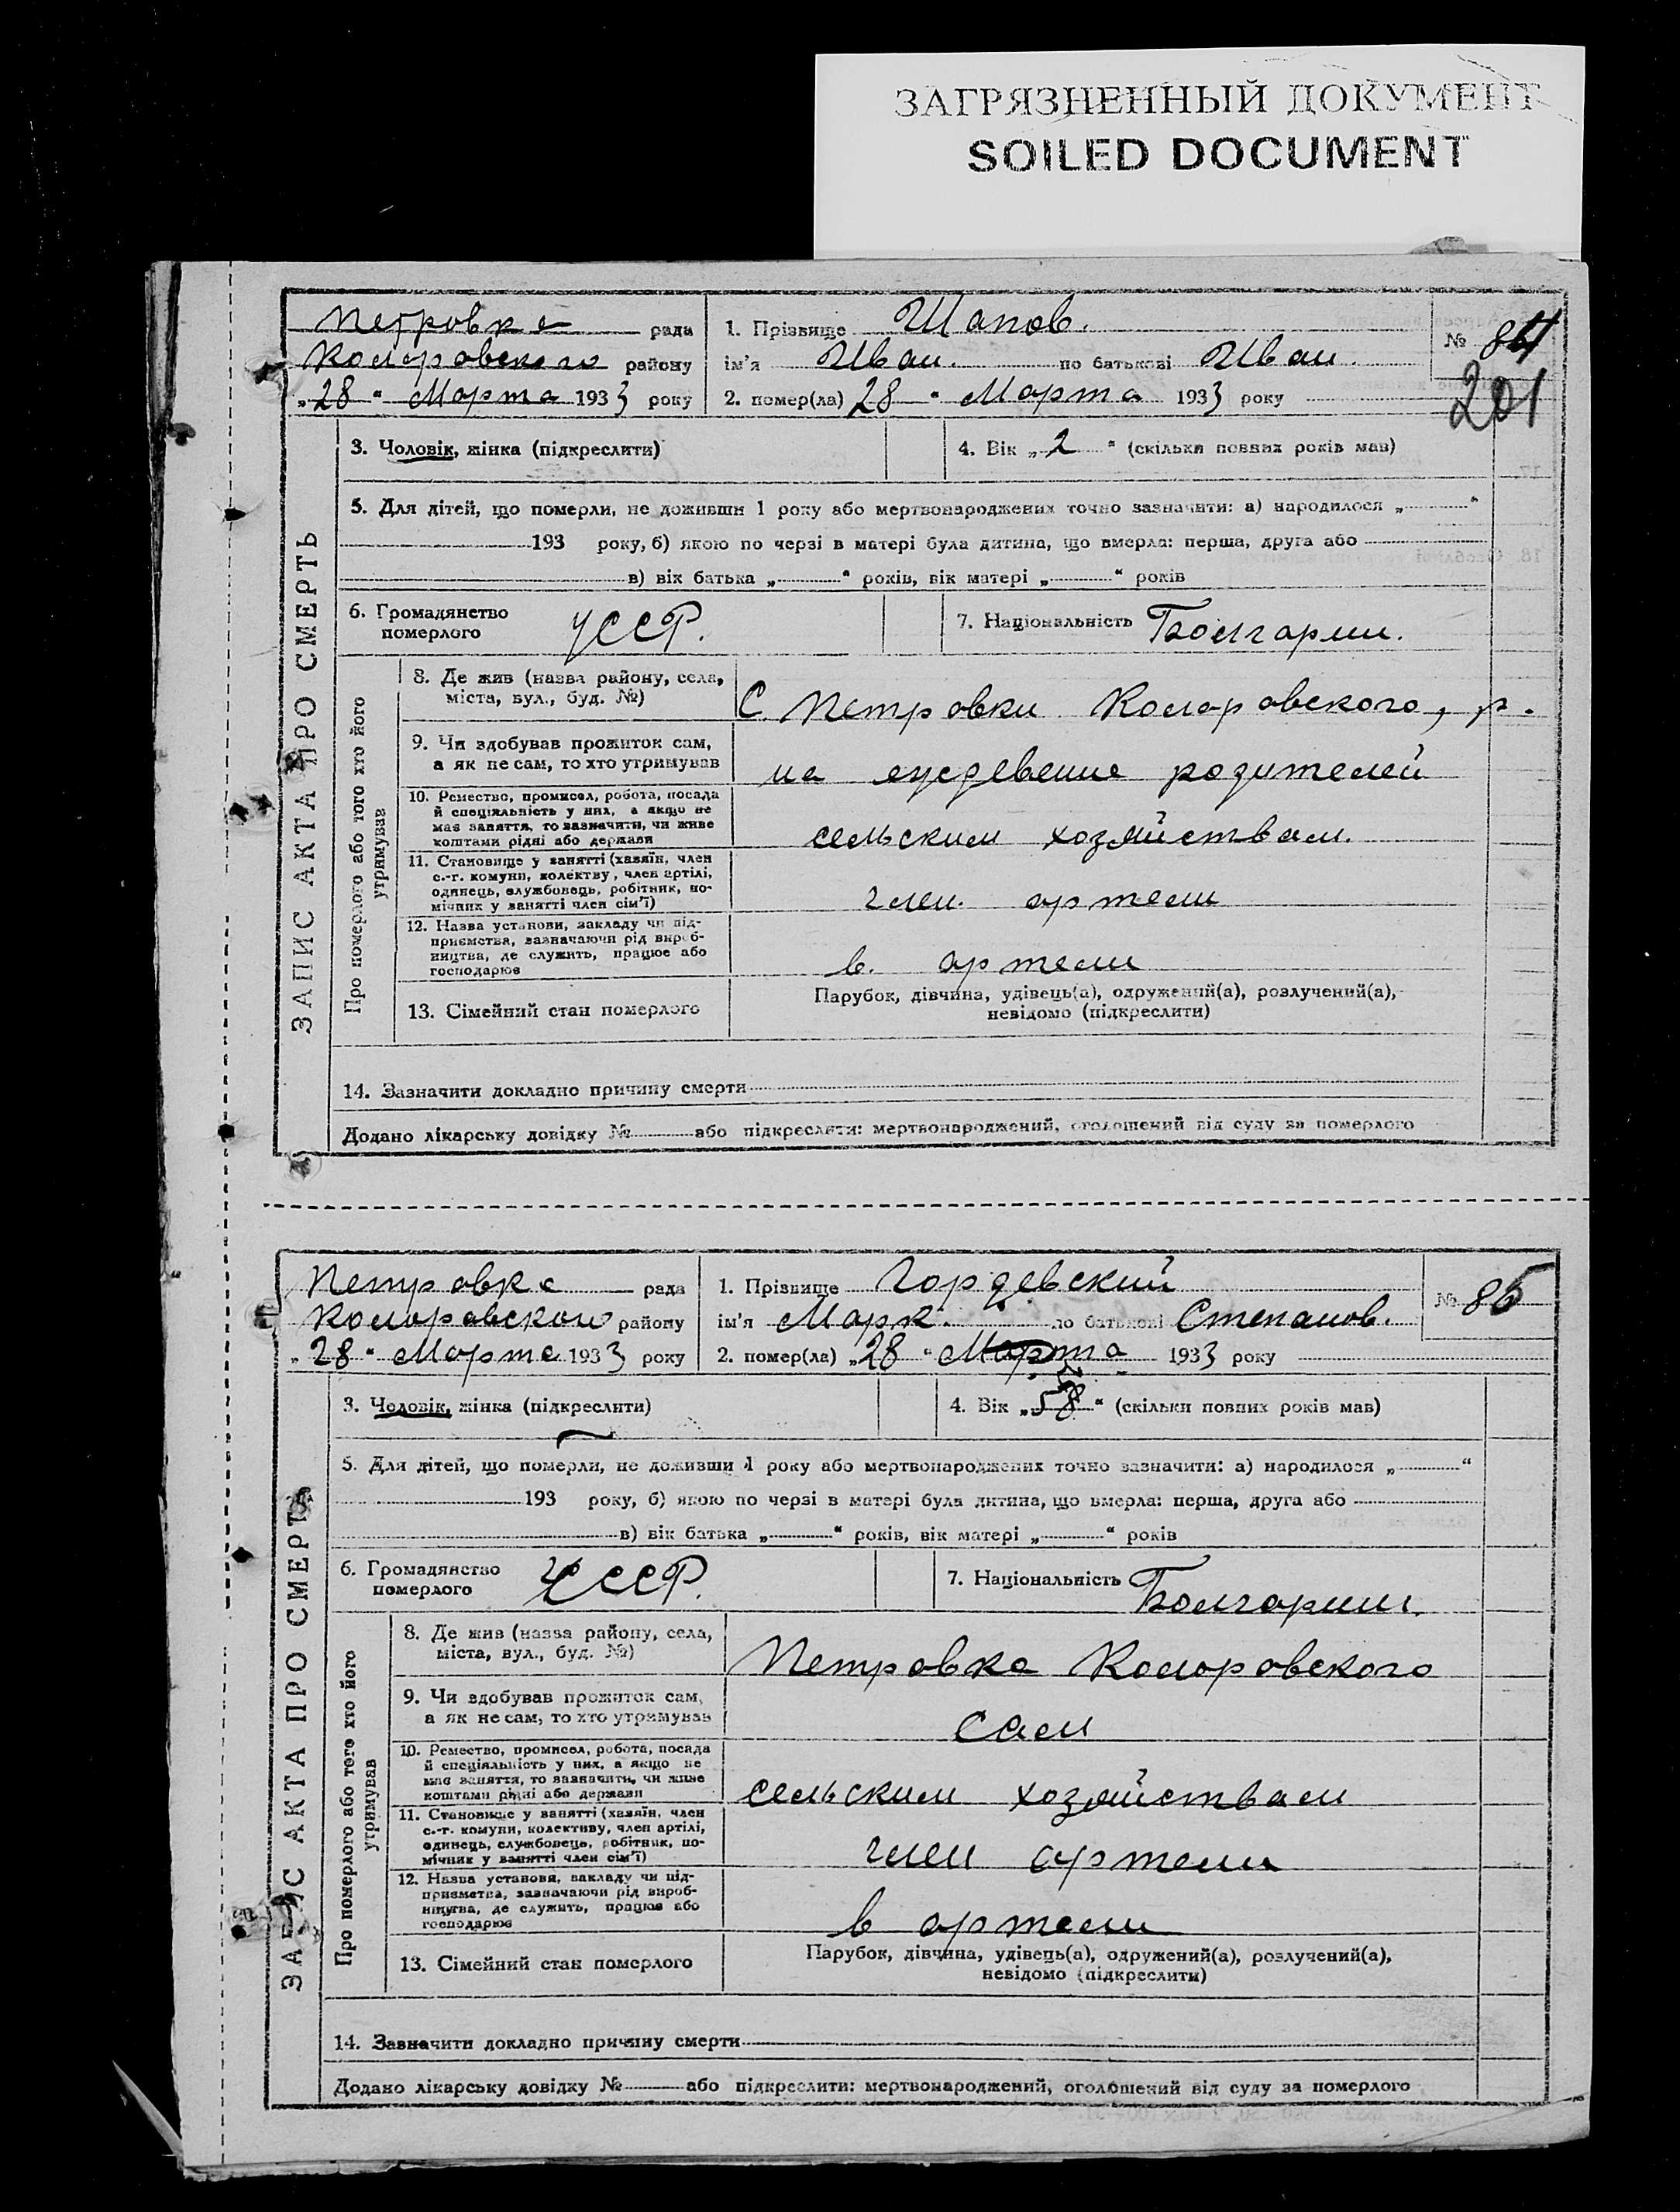 ЗАГРЯЗНЕННЫЙ ДОКУМЕНТ
SOILED DOCUMENT
Петровка рада
Коларовского району
„28“ Марта 1933 року
1. Прізвище Шапов.
ім'я Иван. по батькові Иван.
2. помер(ла) 28 “ Марта 1933 року
№ 84
201
ЗАПИС АКТА ПРО СМЕРТЬ
3. Чоловік, жінка (підкреслити)
4. Вік „2“ (скільки повних років мав)
5. Для дітей, що померли, не доживши 1 року або мертвонароджених точно зазначити: а) народилося „ “
193 року, б) якою по черзі в матері була дитина, що вмерла: перша, друга або
в) вік батька „ “ років, вік матері „ “ років
6. Громадянство
померлого
УССР.
7. Національність Болгарин.
Про померлого або того хто його
утримував
8. Де жив (назва району, села,
міста, вул., буд. №)
С. Петровки Коларовского, р.
9. Чи здобував прожиток сам,
а як не сам, то хто утримував
на еждевение родителей
10. Ремество, промисел, робота, посада
й спеціяльність у них, а якщо не
має заняття, то зазначити, чи живе
коштами рідні або держави
сельским хозяйствам.
11. Становище у занятті (хазяїн, член
с.-г. комуни, колективу, член артілі,
одинець, службовець, робітник, по-
мічник у занятті член сім'ї)
член. артели
12. Назва установи, закладу чи під-
приємства, зазначаючи рід вироб-
ництва, де служить, працює або
господарює
в. артели
13. Сімейний стан померлого
Парубок, дівчина, удівець(а), одружений(а), розлучений(а),
невідомо (підкреслити)
14. Зазначити докладно причину смерти
Додано лікарську довідку № або підкреслити: мертвонароджений, оголошений від суду за померлого
Петровка рада
Коларовского району
„28“ Марта 1933 року
1. Прізвище Гордевский
ім'я Марк. по батькові Степанов.
2. помер(ла) „28“ Марта 1933 року
№ 85
ЗАПИС АКТА ПРО СМЕРТЬ
3. Чоловік, жінка (підкреслити)
4. Вік „58“ (скільки повних років мав)
5. Для дітей, що померли, не доживши 1 року або мертвонароджених точно зазначити: а) народилося „ “
193 року, б) якою по черзі в матері була дитина, що вмерла: перша, друга або
в) вік батька „ “ років, вік матері „ “ років
6. Громадянство
померлого
УССР.
7. Національність Болгарин.
Про померлого або того хто його
утримував
8. Де жив (назва району, села,
міста, вул., буд. №)
Петровка Коларовского
9. Чи здобував прожиток сам,
а як не сам, то хто утримував
сам
10. Ремество, промисел, робота, посада
й спеціяльність у них, а якщо не
має заняття, то зазначити, чи живе
коштами рідні або держави
сельским хозяйствам
11. Становище у занятті (хазяїн, член
с.-г. комуни, колективу, член артілі,
одинець, службовець, робітник, по-
мічник у занятті член сім'ї)
член артели
12. Назва установи, закладу чи під-
приємства, зазначаючи рід вироб-
ництва, де служить, працює або
господарює
в артели
13. Сімейний стан померлого
Парубок, дівчина, удівець(а), одружений(а), розлучений(а),
невідомо (підкреслити)
14. Зазначити докладно причину смерти
Додано лікарську довідку № або підкреслити: мертвонароджений, оголошений від суду за померлого